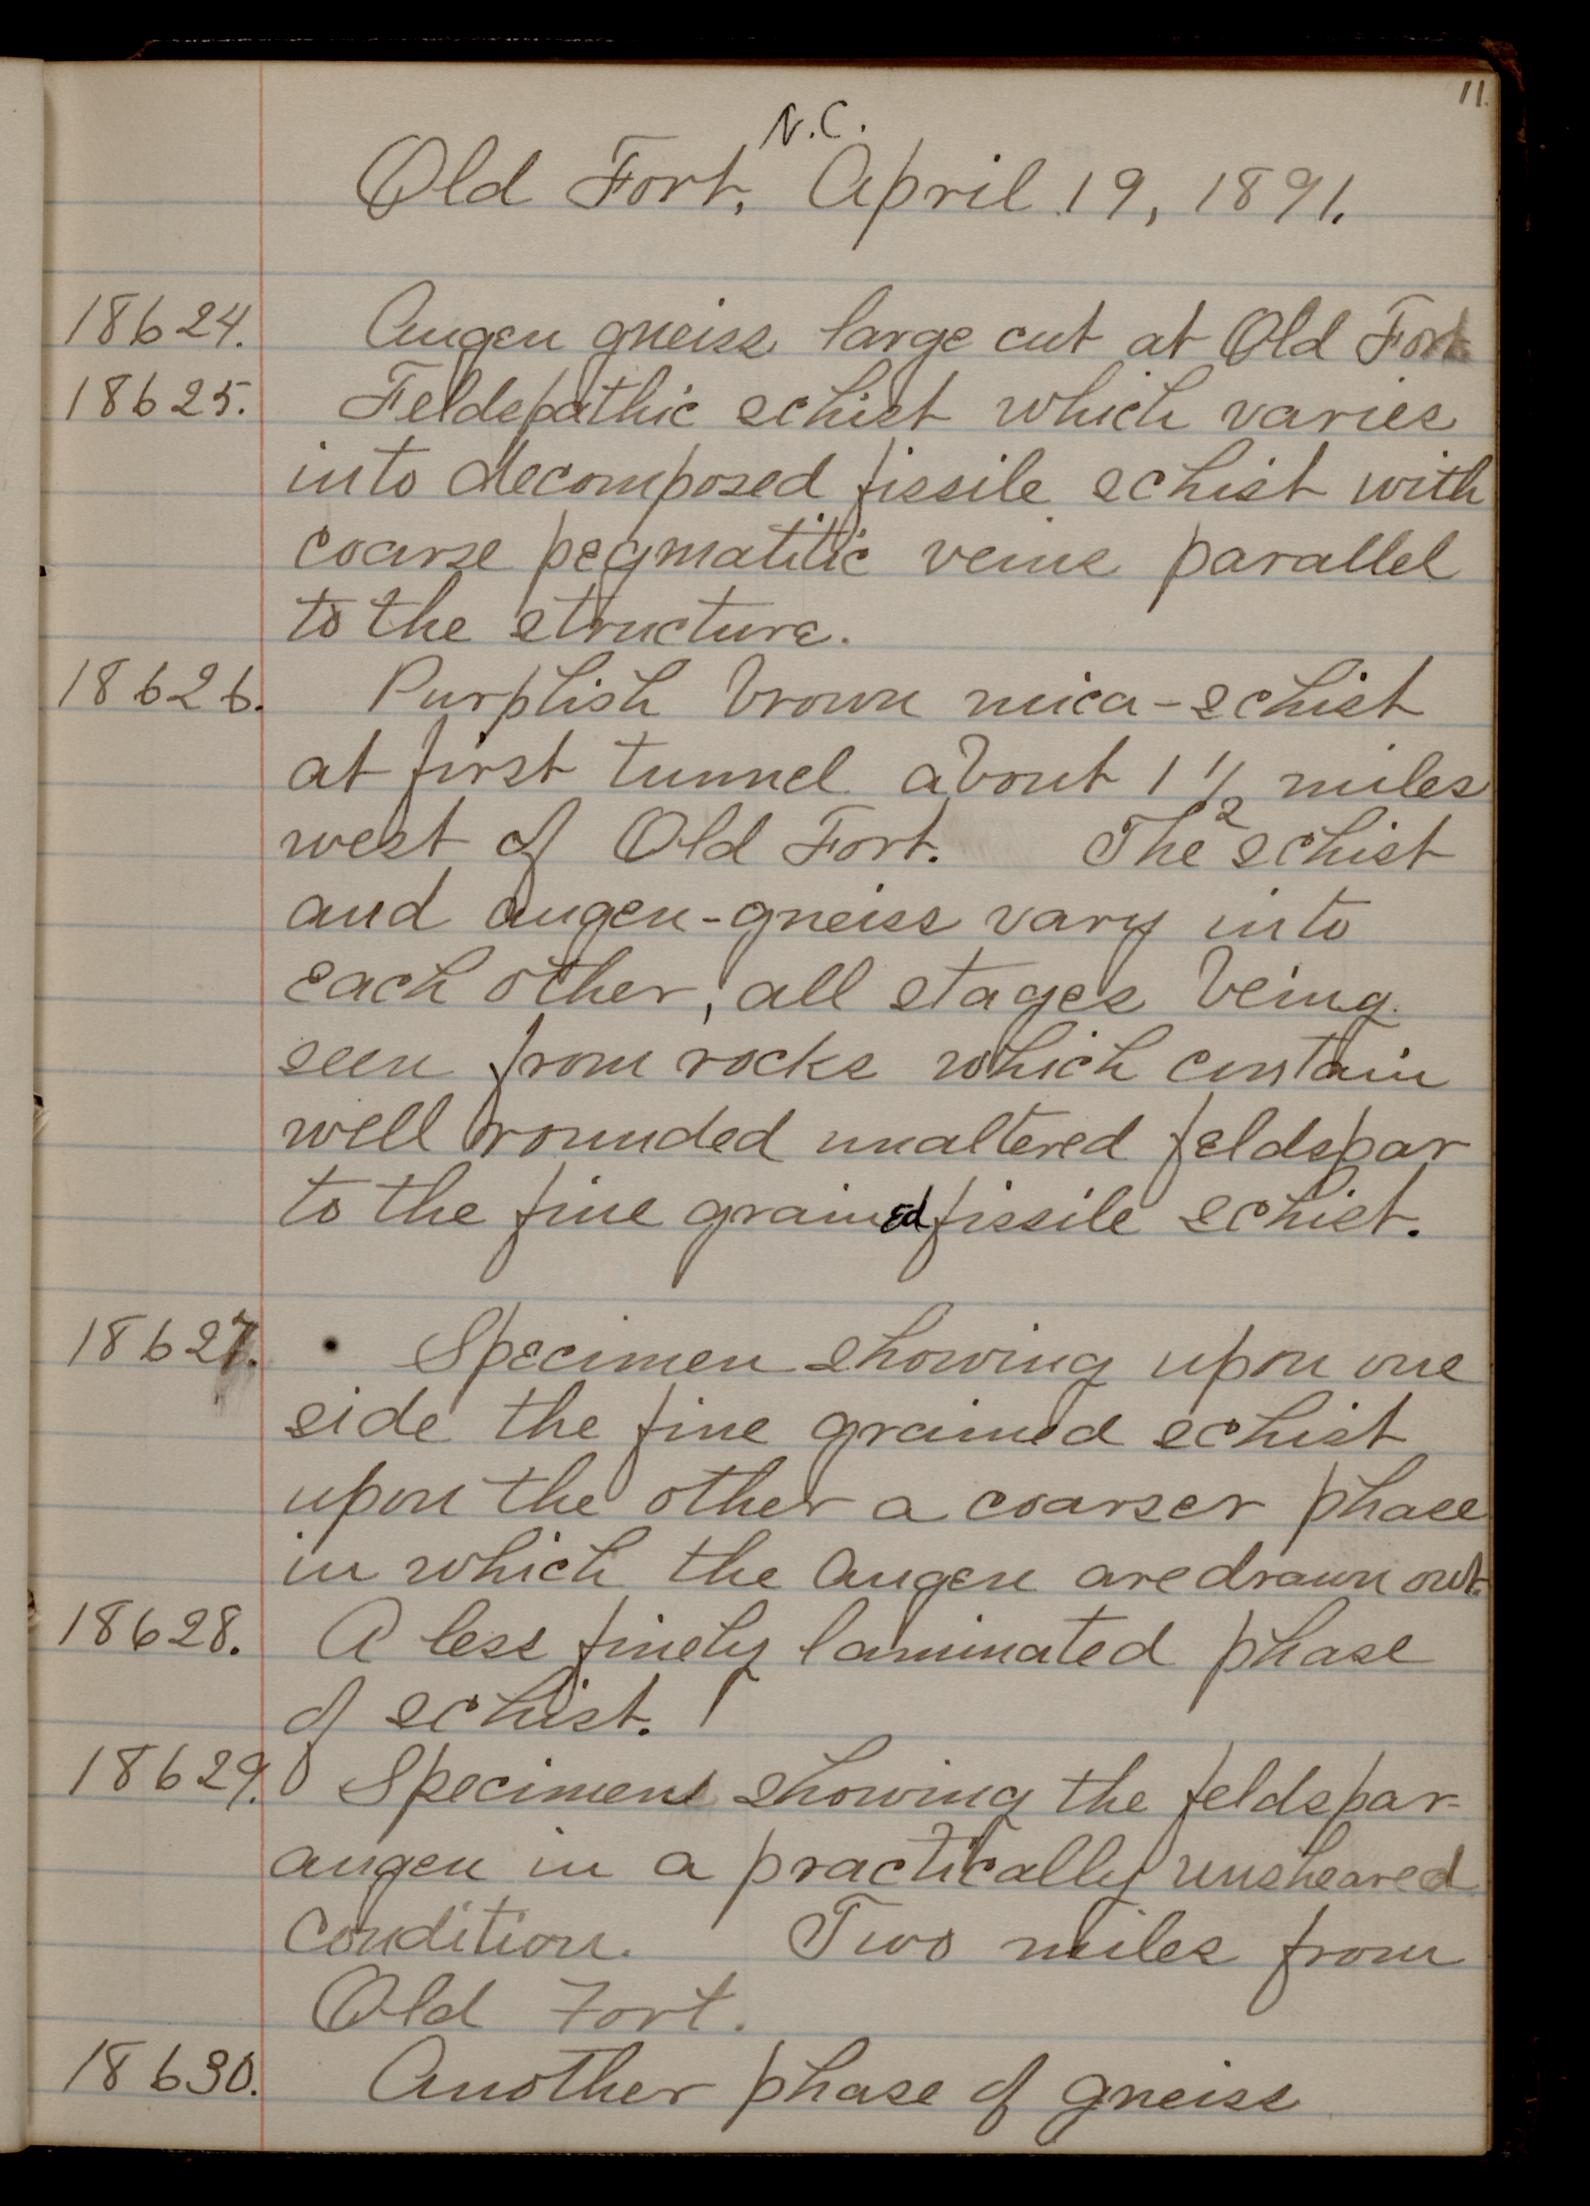 11.
N.C.
Old Fort, April 19, 1891.
18624. Augen gneiss large cut at Old Fort
18625. Feldspathic schist which varies
into decomposed fissile schist with
coarse pegmatitic veins parallel
to the structure.
18626. Purplish brown mica-schist
at first tunnel about 1 1/2 miles
west of Old Fort. The schist
and augen-gneiss vary into
each other, all stages being
seen from rocks which contain
well rounded unaltered feldspar
to the fine grained fissile schist.
18627. Specimen showing upon one
side the fine grained schist
upon the other a coarser phase
in which the augen are drawn out.
18628. A less finely laminated phase
of schist.
18629. Specimens showing the feldspar-
augen in a practically unsheared
condition. Two miles from
Old Fort.
18630. Another phase of gneiss